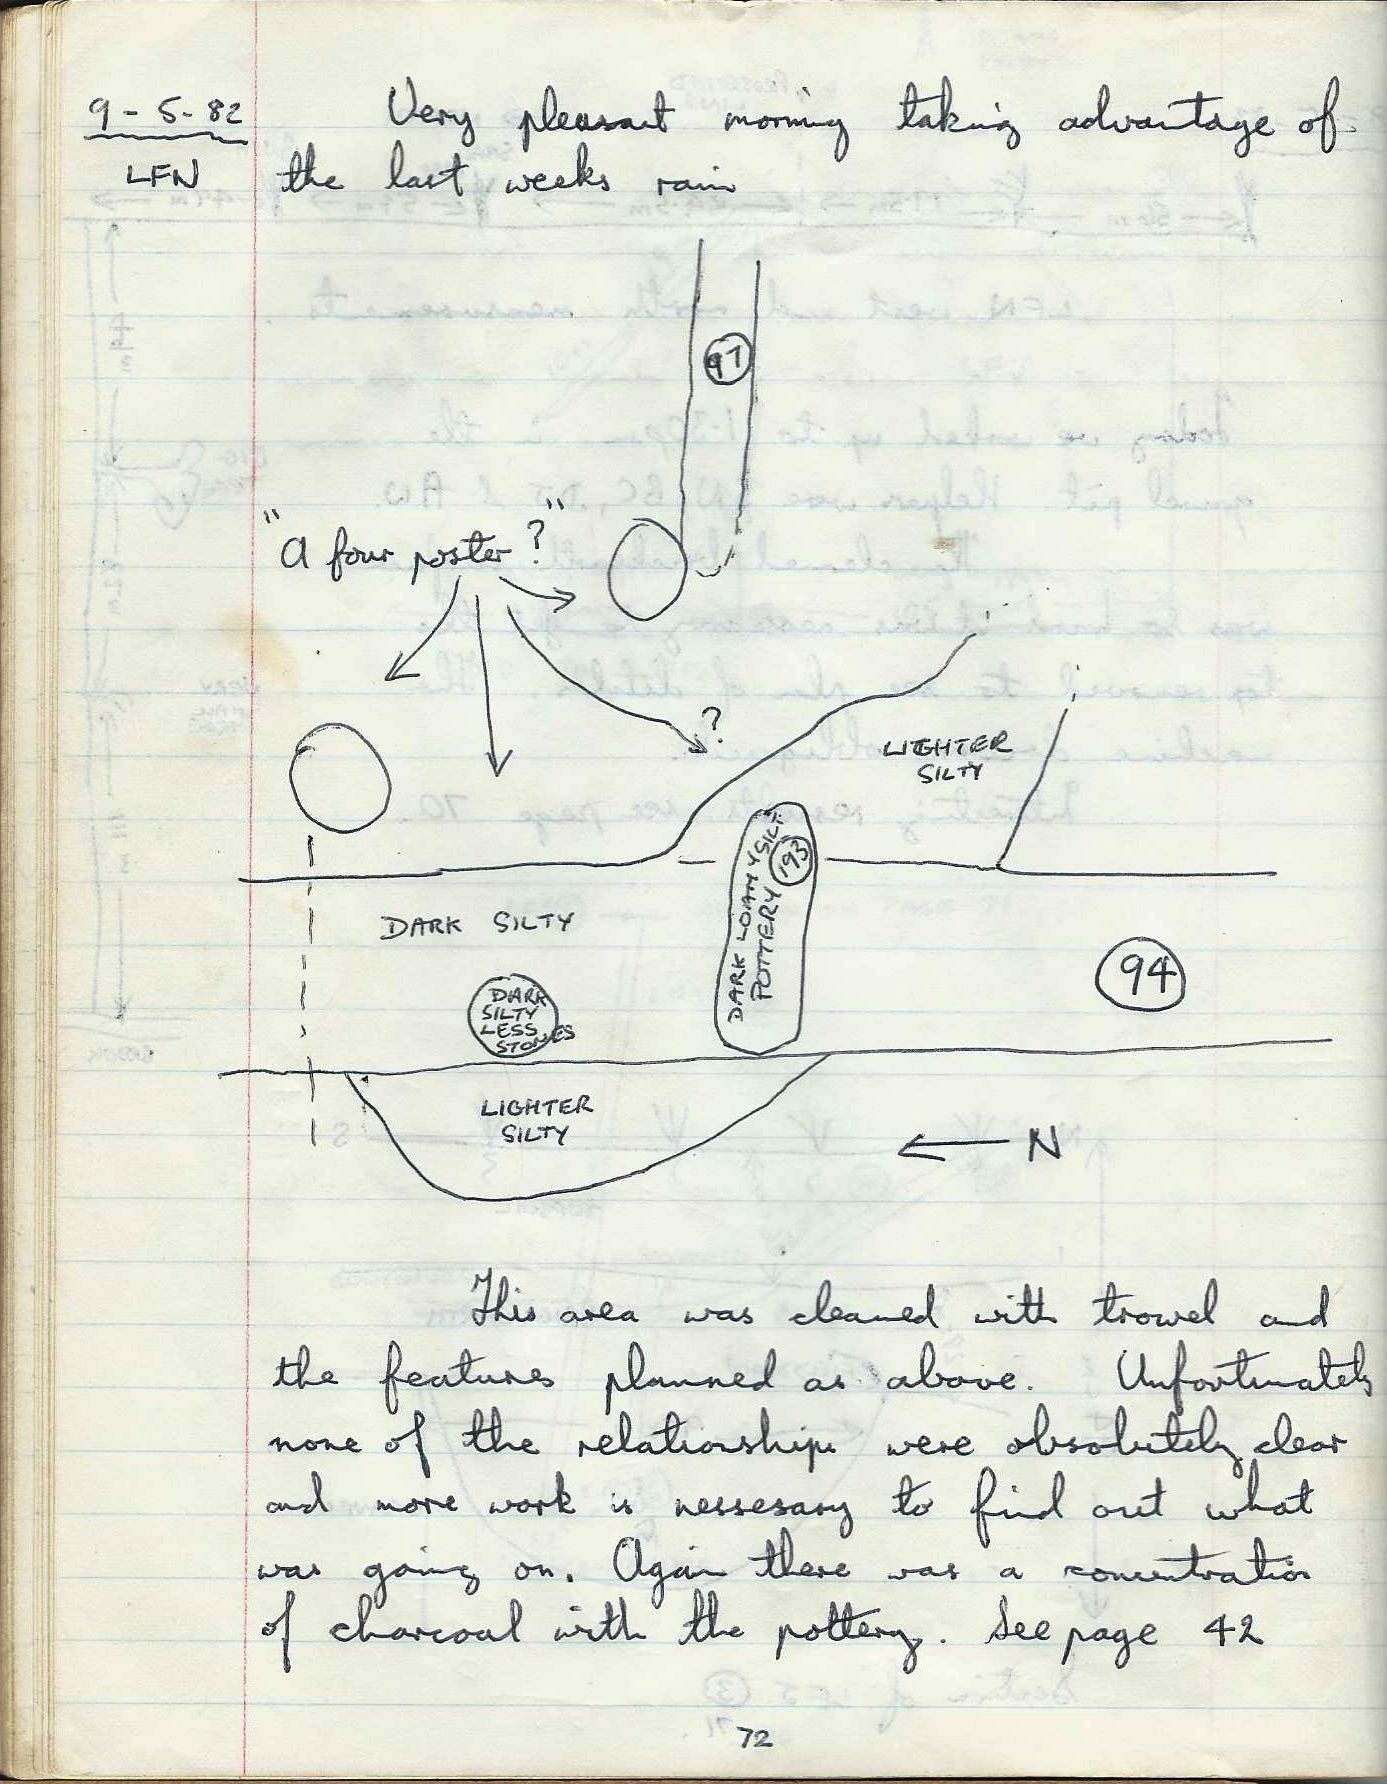 9-5-82
LFN
Very pleasant morning taking advantage of
the last weeks rain
97
"A four poster?"
?
LIGHTER
SILTY
193
DARK LOAMY SILT
POTTERY
DARK SILTY
94
DARK
SILTY
LESS
STONES
LIGHTER
SILTY
N
This area was cleaned with trowel and
the features planned as above. Unfortunately
none of the relationships were absolutely clear
and more work is nessesary to find out what
was going on. Again there was a concentration
of charcoal with the pottery. See page 42
72